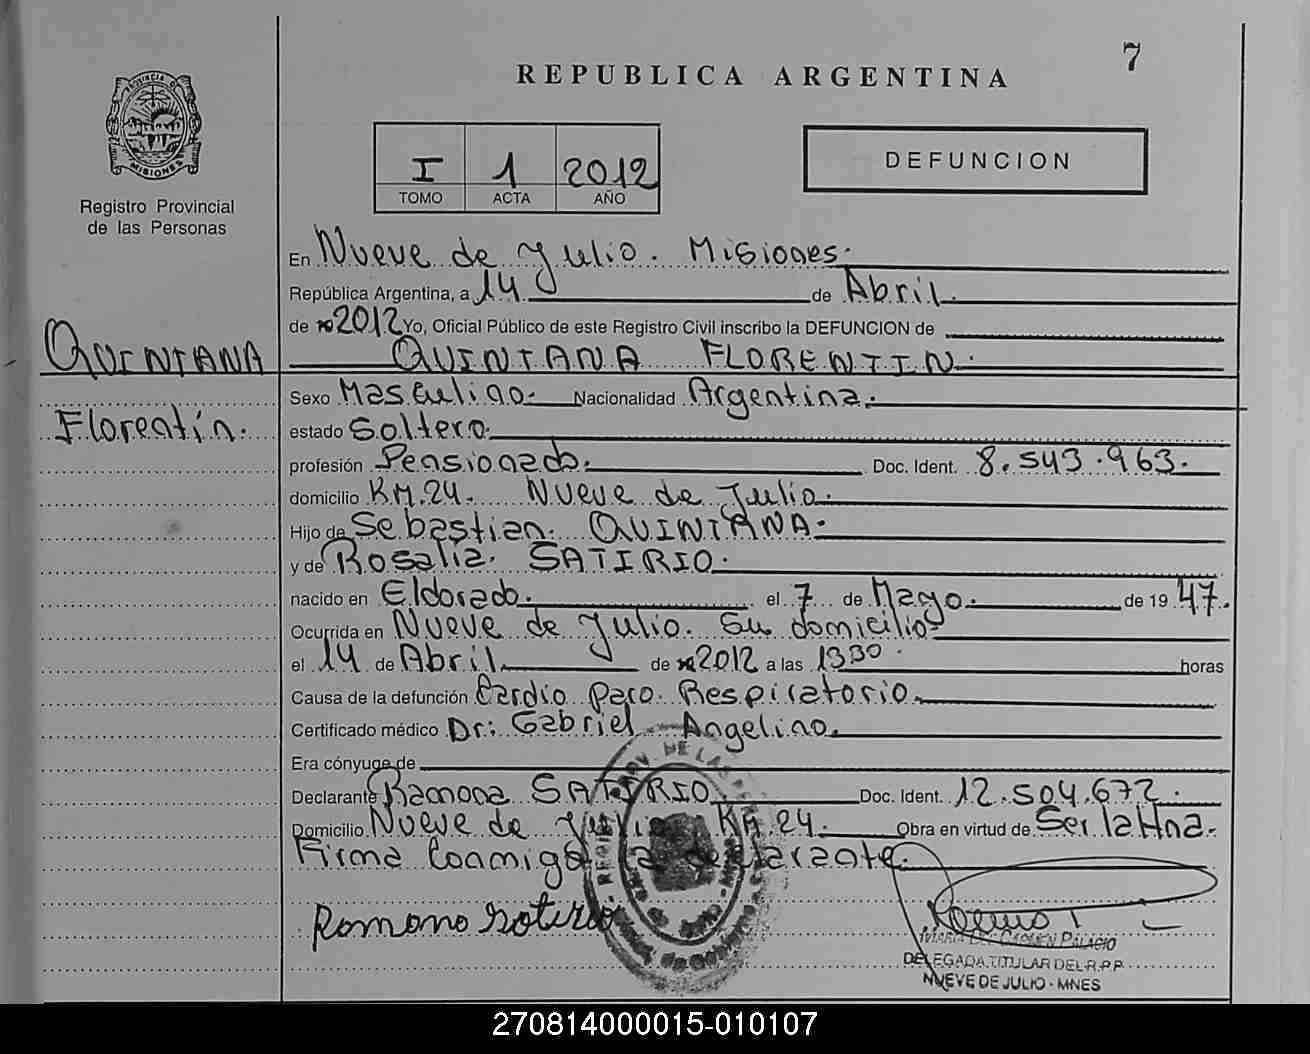 7
REPUBLICA ARGENTINA
PROVINCIA D MISIONES
Registro Provincial
de las Personas
I 1 2012
TOMO ACTA AÑO
DEFUNCION
En Nueve de Julio. Misiones.
República Argentina, a 14 de Abril.
de 2012 Yo, Oficial Público de este Registro Civil inscribo la DEFUNCION de
QUINTANA
QUINTANA FLORENTIN.
Florentín.
Sexo Masculino. Nacionalidad Argentina.
estado Soltero.
profesión Pensionado. Doc. Ident. 8.543.963.
domicilio KM.24. Nueve de Julio.
Hijo de Sebastian. QUINTANA.
y de Rosalia. SATIRIO.
nacido en Eldorado. el 7 de Mayo. de 19 47.
Ocurrida en Nueve de Julio. Su domicilio
el 14 de Abril. de 2012 a las 1330. horas
Causa de la defunción Cardio Paro. Respiratorio.
Certificado médico Dr: Gabriel Angelino.
Era cónyuge de
Declarante Ramona SATIRIO Doc. Ident. 12.504.672.
Domicilio Nueve de Julio KM.24. Obra en virtud de Ser la Hna.
Firma Conmigo la declarante.
Ramona
MARIA DEL CARMEN PALACIO
DELEGADA TITULAR DEL R.P.P.
NUEVE DE JULIO - MNES
270814000015-010107